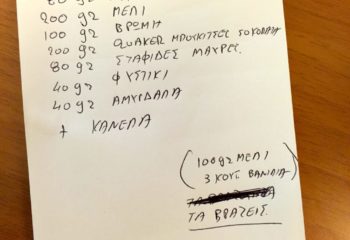 200 gr ΜΕΛΙ
100 gr ΒΡΩΜΗ
200 gr QUAKER ΜΠΟΥΚΙΤΣΕΣ ΣΟΚΟΛΑΤΑ
80 gr ΣΤΑΦΙΔΕΣ ΜΑΥΡΕΣ.
40 gr ΦΥΣΤΙΚΙ
40 gr ΑΜΥΓΔΑΛΑ
+ ΚΑΝΕΛΑ
(100 gr ΜΕΛΙ
3 ΚΟΥΤ ΒΑΝΙΛΙΑ)
ΤΑ ΒΡΑΖΕΙΣ.